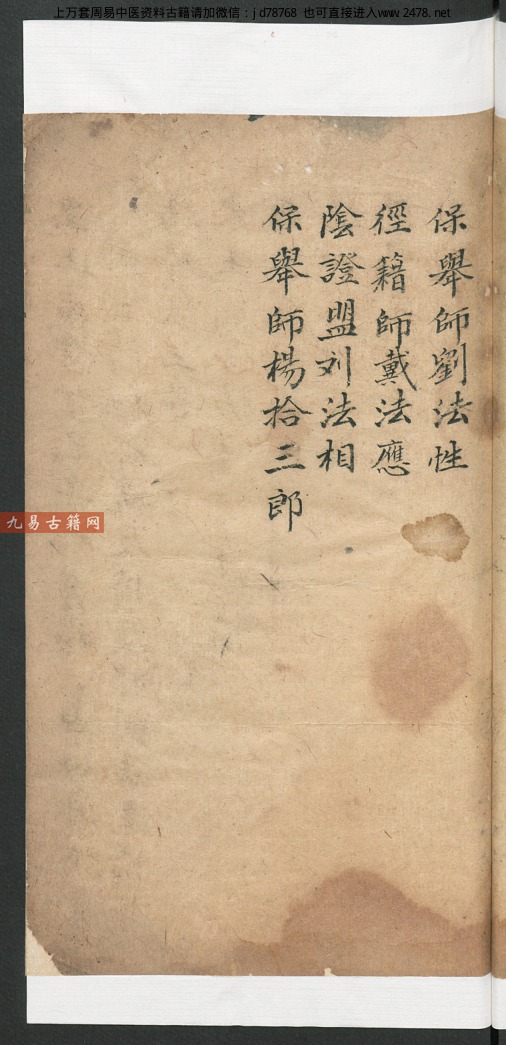 上万套周易中医资料古籍请加微信：jd78768 也可直接进入www.2478.net
保舉師劉法性
徑籍師戴法應
陰證盟刘法相
保舉師楊拾三郎
九易古籍网